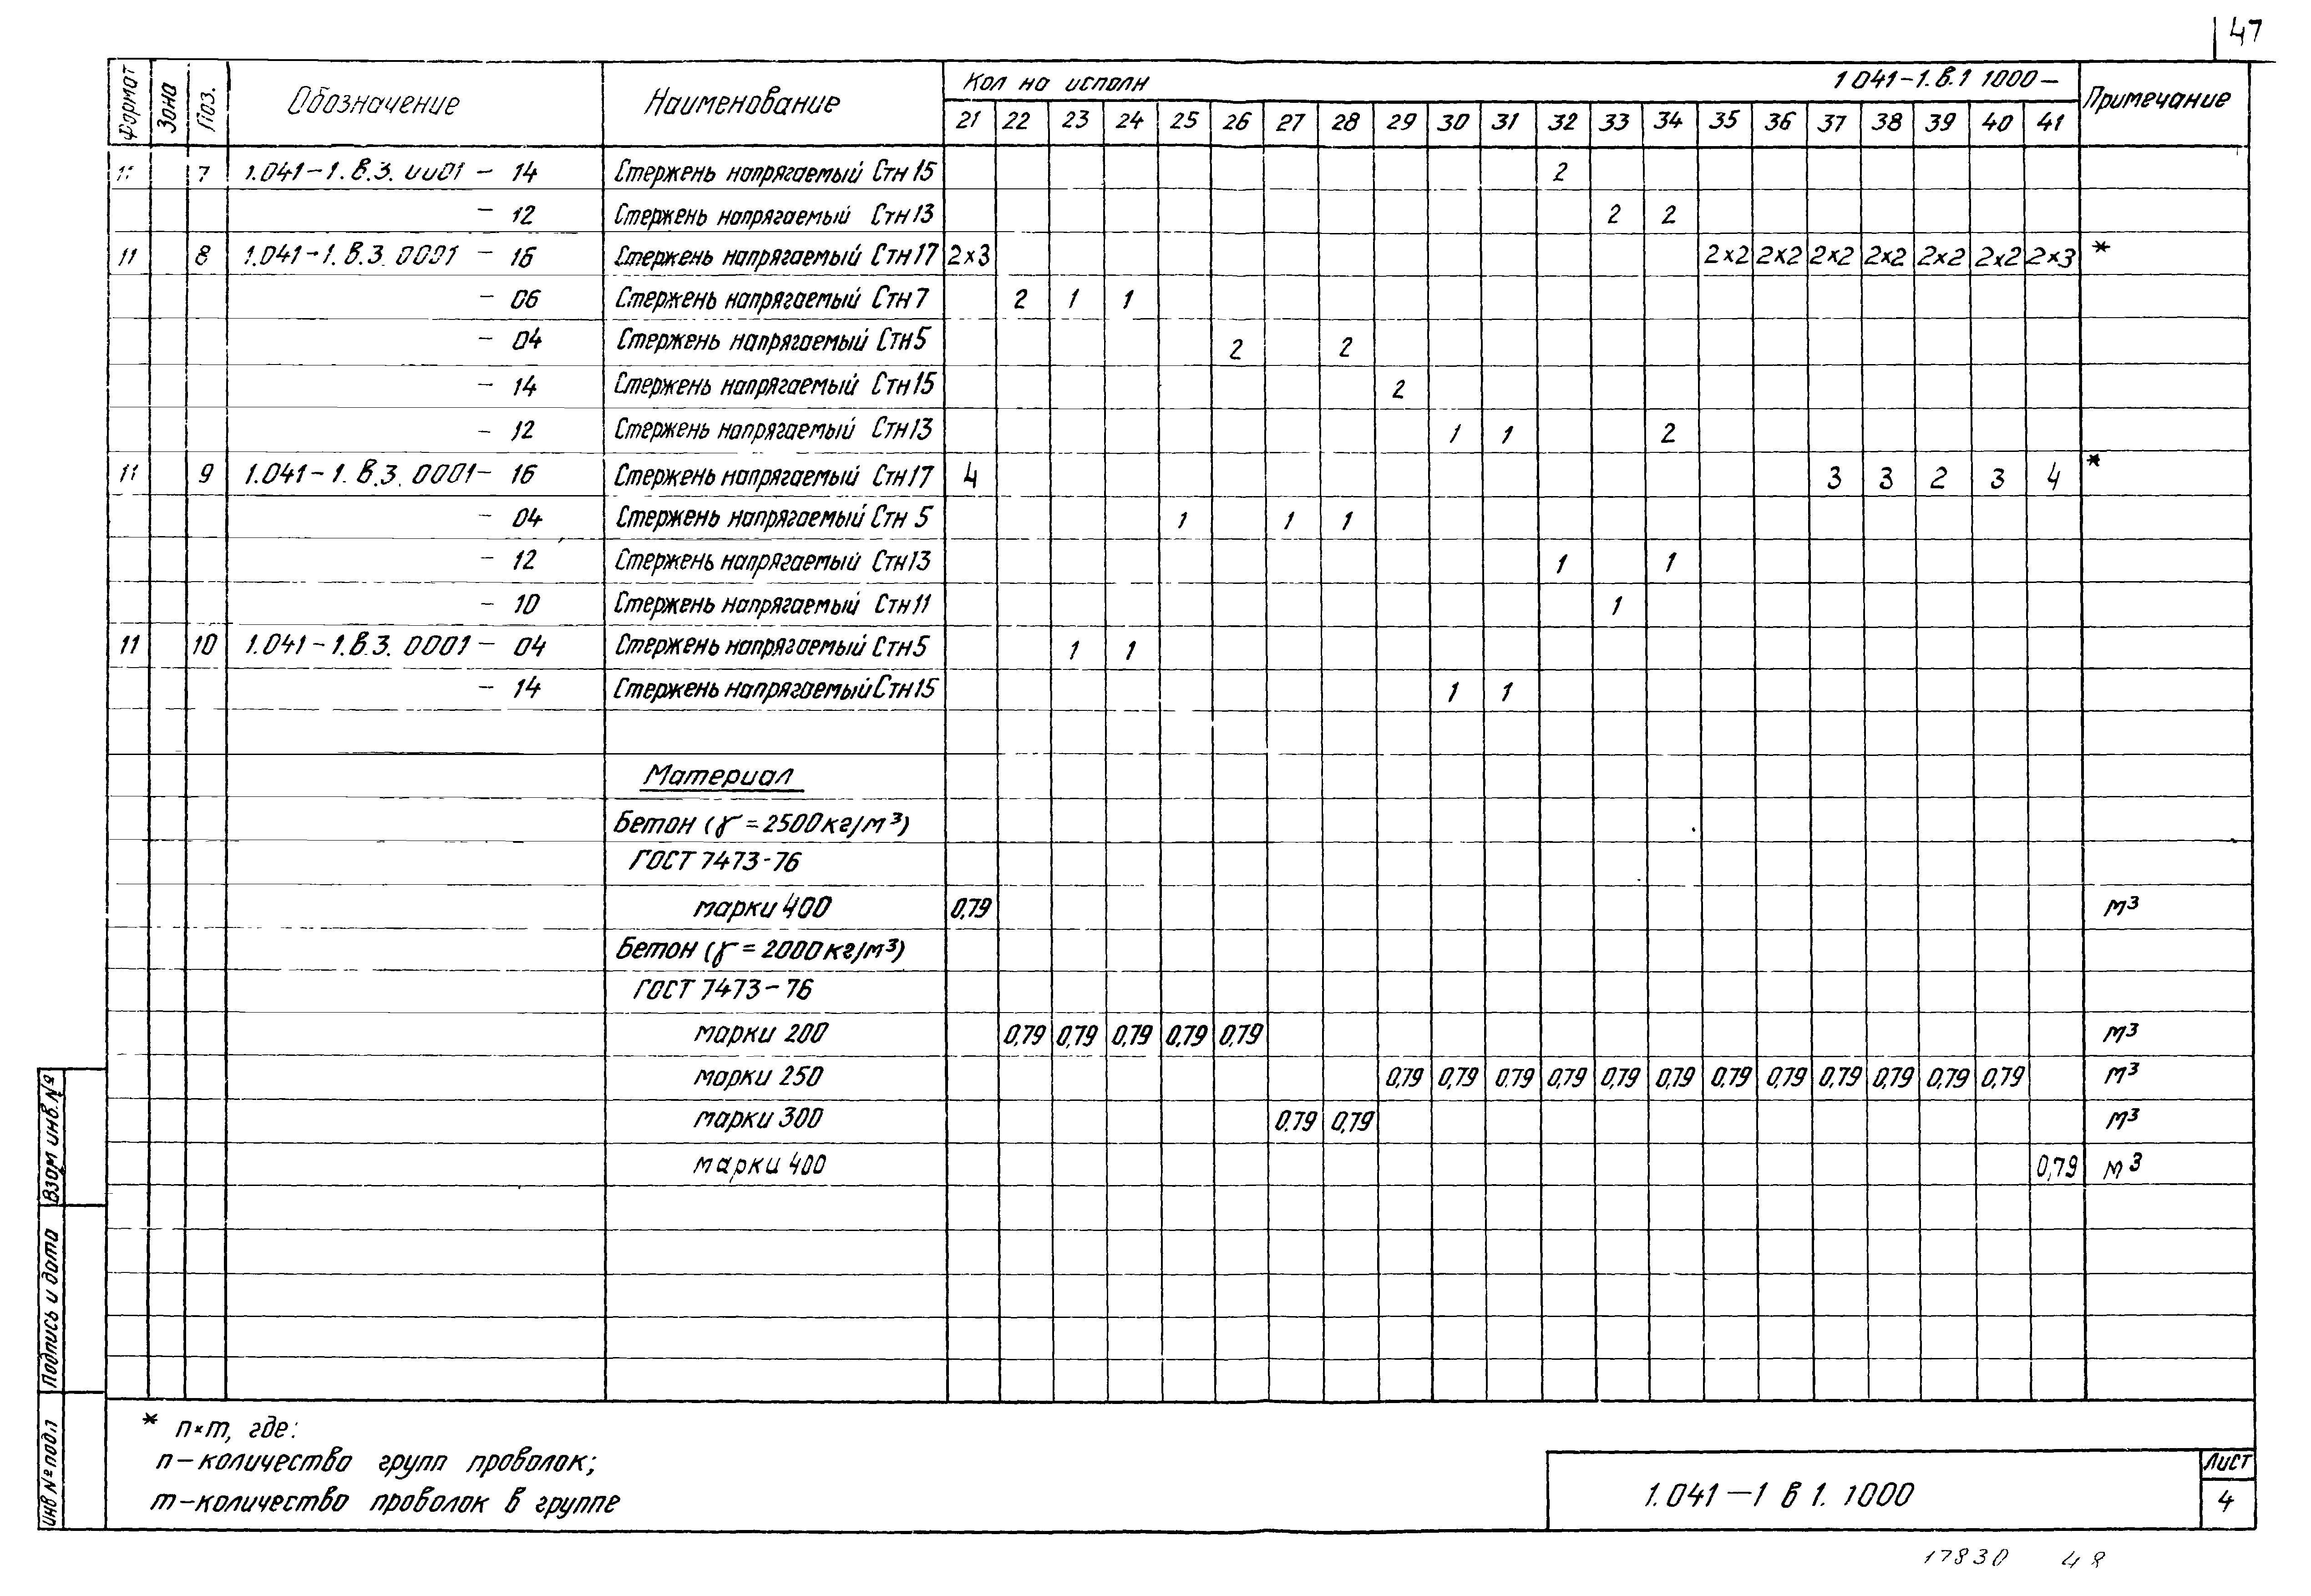 47
Формат Зона Поз. Обозначение Наименование Кол на исполн 1 041-1. в.1 1000- Примечание
21 22 23 24 25 26 27 28 29 30 31 32 33 34 35 36 37 38 39 40 41
11 7 1.041-1. в.3. 0001 - 14 Стержень напрягаемый Стн 15 2
- 12 Стержень напрягаемый Стн 13 2 2
11 8 1.041-1. в.3. 0001 - 16 Стержень напрягаемый Стн 17 2×3 2×2 2×2 2×2 2×2 2×2 2×2 2×3 *
- 06 Стержень напрягаемый Стн 7 2 1 1
- 04 Стержень напрягаемый Стн 5 2 2
- 14 Стержень напрягаемый Стн 15 2
- 12 Стержень напрягаемый Стн 13 1 1 2
11 9 1.041-1. в.3. 0001- 16 Стержень напрягаемый Стн 17 4 3 3 2 3 4 *
- 04 Стержень напрягаемый Стн 5 1 1 1
- 12 Стержень напрягаемый Стн 13 1 1
- 10 Стержень напрягаемый Стн 11 1
11 10 1.041-1.в.3. 0001- 04 Стержень напрягаемый Стн 5 1 1
- 14 Стержень напрягаемый Стн 15 1 1
Материал
Бетон (γ=2500кг/м³)
ГОСТ 7473-76
марки 400 0,79 м³
Бетон (γ=2000кг/м³)
ГОСТ 7473-76
марки 200 0,79 0,79 0,79 0,79 0,79 м³
марки 250 0,79 0,79 0.79 0,79 0,79 0,79 0,79 0,79 0,79 0,79 0,79 0,79 м³
марки 300 0.79 0,79 м³
марки 400 0,79 м³
* п×т, где:
п-количество групп проволок;
т-количество проволок в группе
1.041-1 в 1. 1000
Лист
4
Инв № подл Подпись и дата Взам инв. №
17830 48